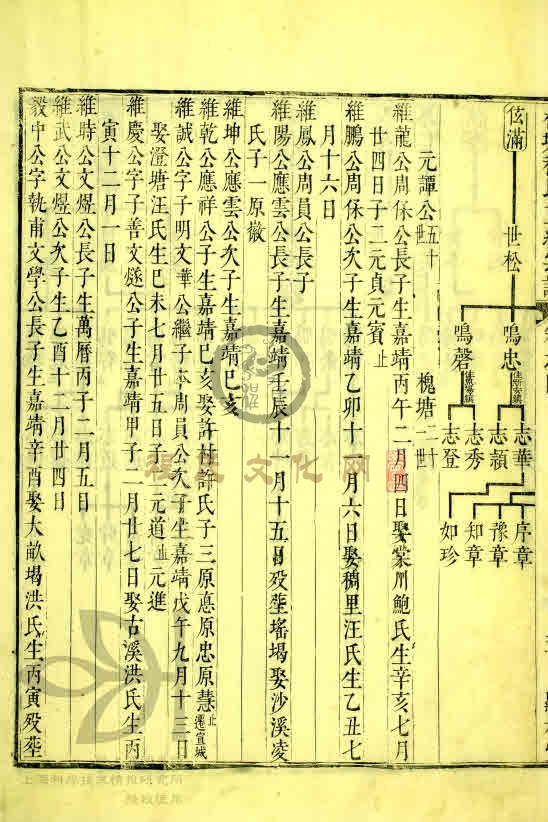 伭滿
世松
鳴忠
鳴磬
志華
志穎
志秀
志登
序章
豫章
知章
如珍
元譚公五十 槐塘二世
維龍公周休公長子生嘉靖丙午二月四日娶棠川鮑氏生辛亥七月
廿四日子二元貞元賓止
維鵬公周休公次子生嘉靖乙卯十一月六日娶稠里汪氏生乙丑七
月十六日
維鳳公周員公長子
維陽公應雲公長子生嘉靖壬辰十一月十五日歿塟瑤堨娶沙溪凌
氏子一原儆
維坤公應雲公次子生嘉靖己亥
維乾公應祥公子生嘉靖己亥娶許村許氏子三原惪原忠原慧止遷宣城
維誠公字子明文華公繼子本周員公次子生嘉靖戊午九月十三日
娶澄塘汪氏生己未七月廿五日子二元道止元進
維慶公字子善文燧公子生嘉靖甲子二月廿七日娶古溪洪氏生丙
寅十二月一日
維時公文煜公長子生萬曆丙子二月五日
維武公文煜公次子生乙酉十二月廿四日
毅中公字執甫文學公長子生嘉靖辛酉娶大畝堨洪氏生丙寅歿塟